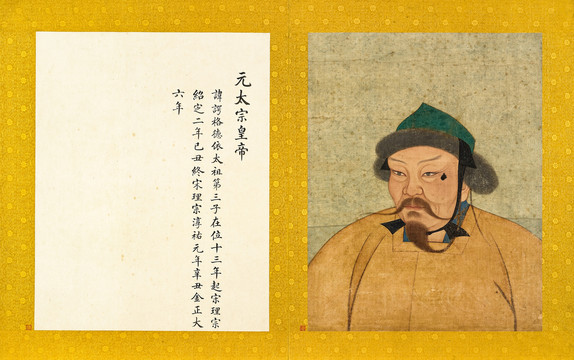 元太宗皇帝
諱諤格德依太祖第三子在位十三年起宋理宗
紹定二年己丑終宋理宗淳祐元年辛丑金正大
六年